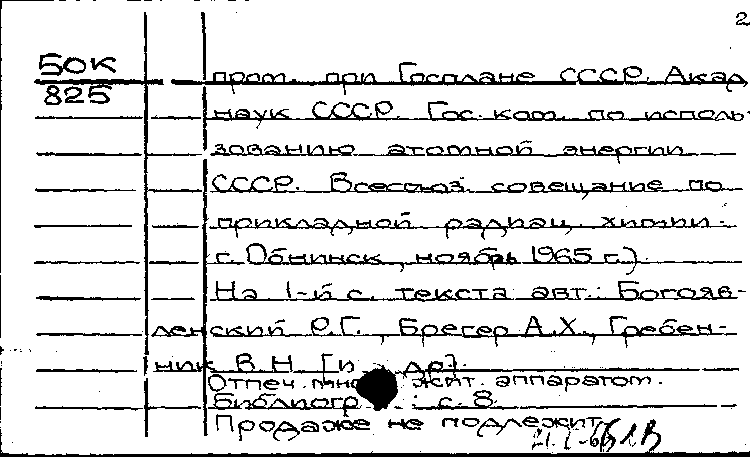 2
50К
825
пром. при Госплане СССР. Акад.
наук СССР. Гос. ком. по исполь-
зованию атомной энергии
СССР. Всесоюз. совещание по
прикладной радиац. химии.
г. Обнинск, ноябрь 1965 г.).
На 1-й с. текста авт.: Богояв-
ленский Р.Г., Брегер А.Х., Гребен-
ник В.Н. [и др].
Отпеч. аппаратом.
Библиогр.: с. 8
Продаже не подлежит